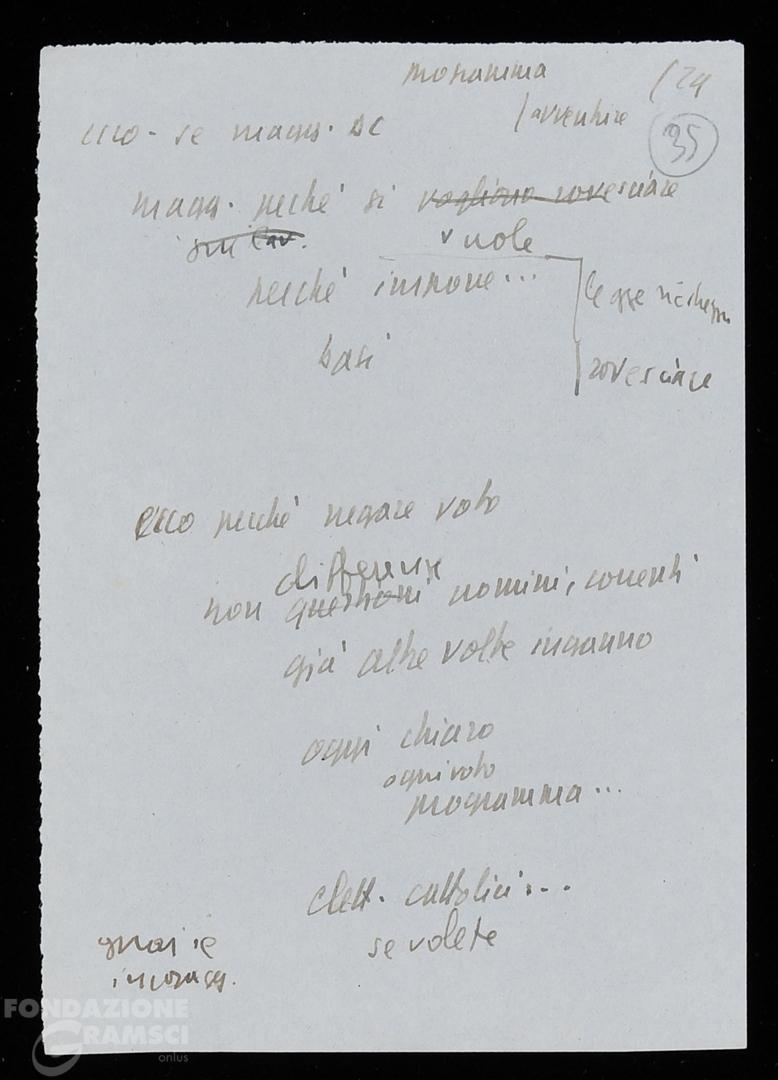 programma /24
ecco - se magg. DC /avventure
35
magg. perché si vogliono rovesciare
sin lav. vuole
perché impone... legge
basi rovesciare
Ecco perché negare voto
differenze
non questioni uomini, correnti
già altre volte inganno
oggi chiaro
ogni voto
programma...
elett. cattolici...
guai se se volete
incoragg.
FONDAZIONE
GRAMSCI
onlus